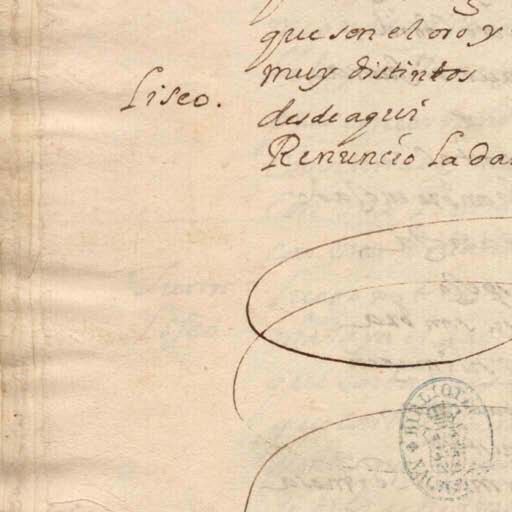 que son el oro y
muy distintos
Liseo. desde aqui
Renuncio la da
BIBLIOTE
NACIONAL